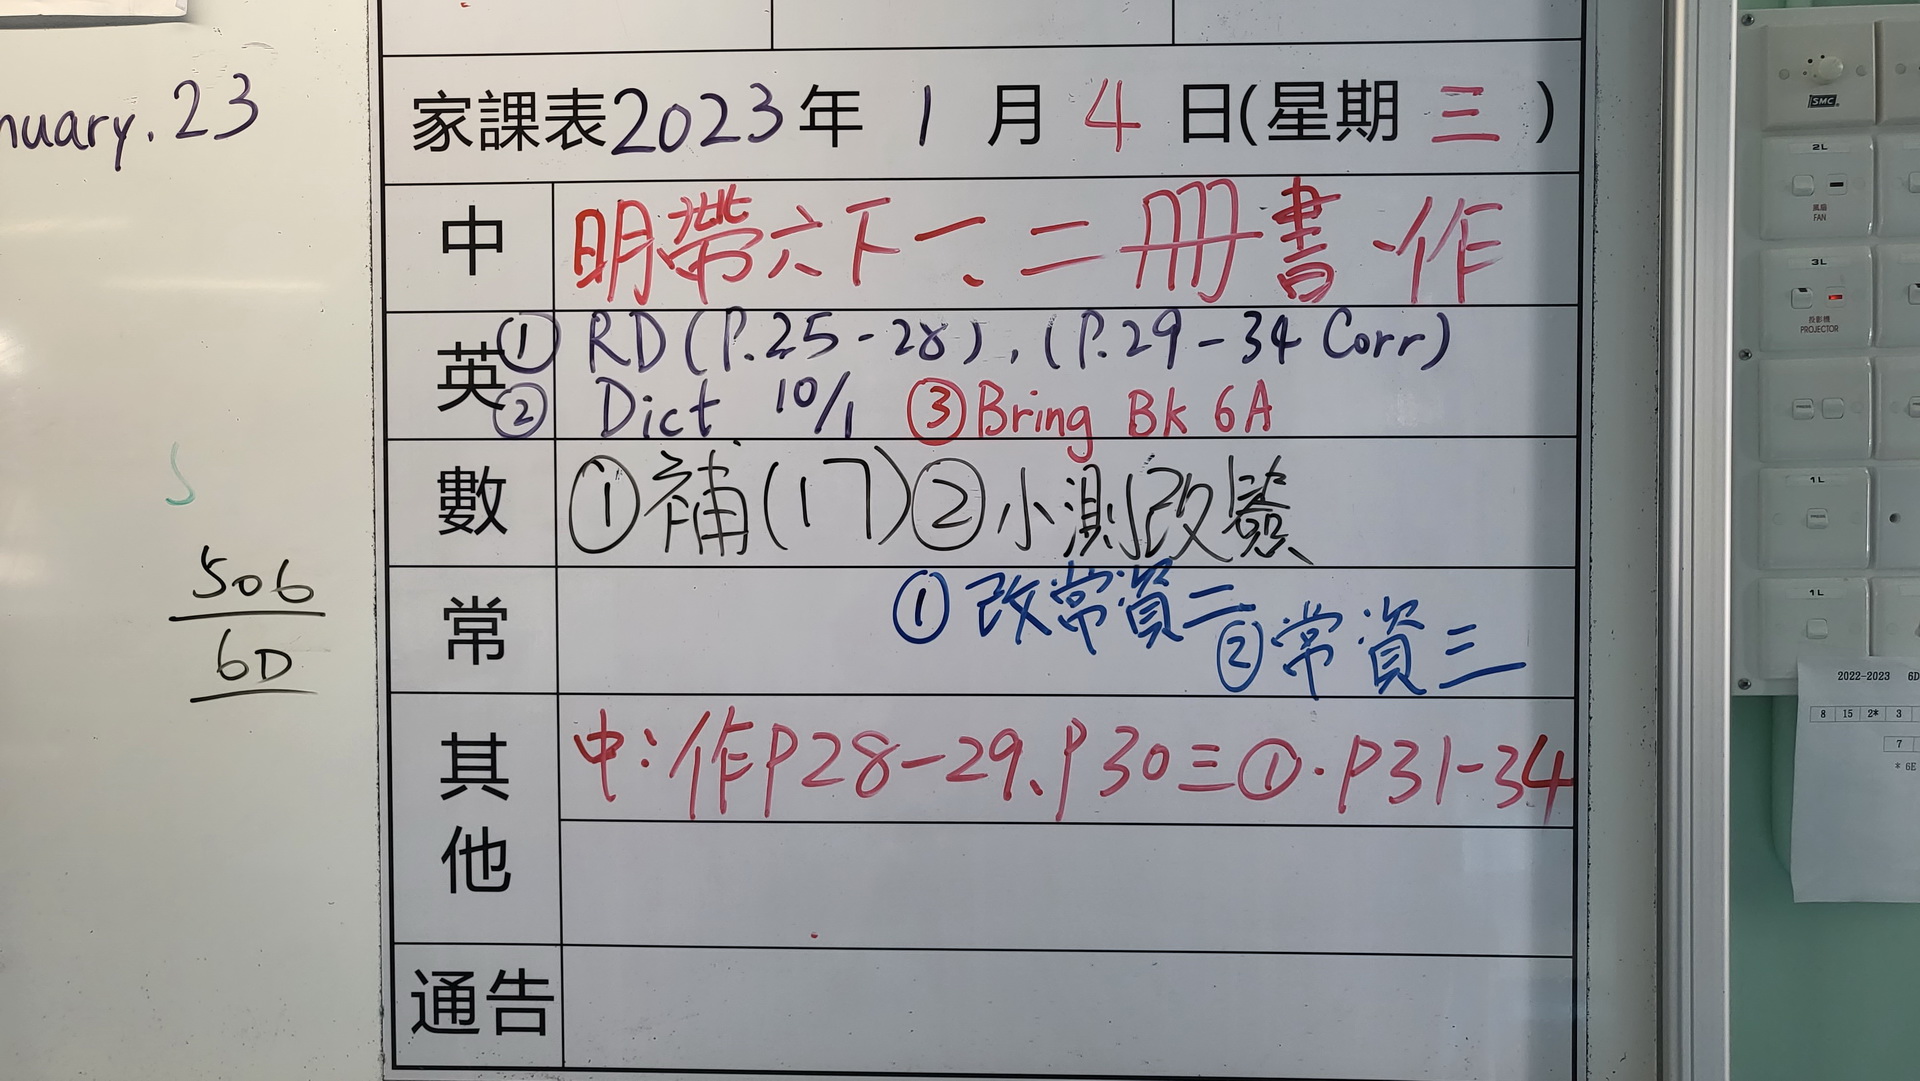 nuary. 23
506
6D
家課表2023年 1 月 4 日(星期 三 )
中 明帶六下一、二冊書、作
英 ① RD (P.25-28), (P.29-34 Corr)
② Dict 10/1 ③ Bring Bk 6A
數 ①補(17)②小測改簽
常 ①改常資二
②常資三
其他 中:作P28-29、P30三①、P31-34
通告
SMC
2L
風扇
FAN
3L
投影機
PROJECTOR
1L
1L
2022-2023 6D
8 15 2* 3
7
* 6E